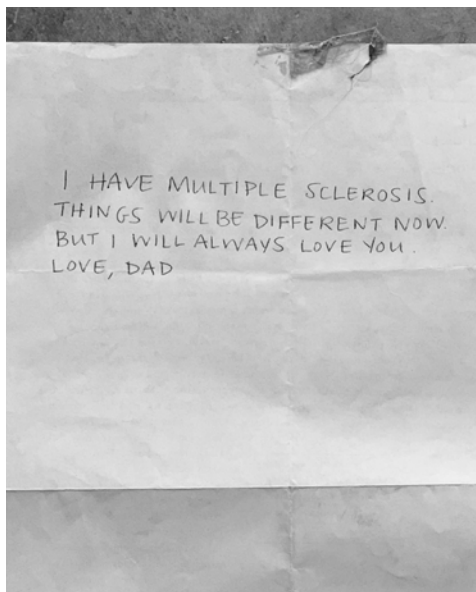 I HAVE MULTIPLE SCLEROSIS.
THINGS WILL BE DIFFERENT NOW.
BUT I WILL ALWAYS LOVE YOU.
LOVE, DAD